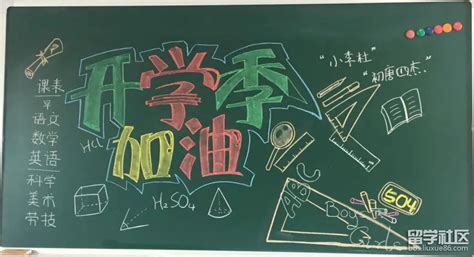 课表
早
语文
数学
英语
科学
美术
劳技
开学季
加油
HCl
H₂SO₄
"小李杜"
"初唐四杰"
504
ABC
Boys
Girls
留学社区
bbs.liuxue86.com